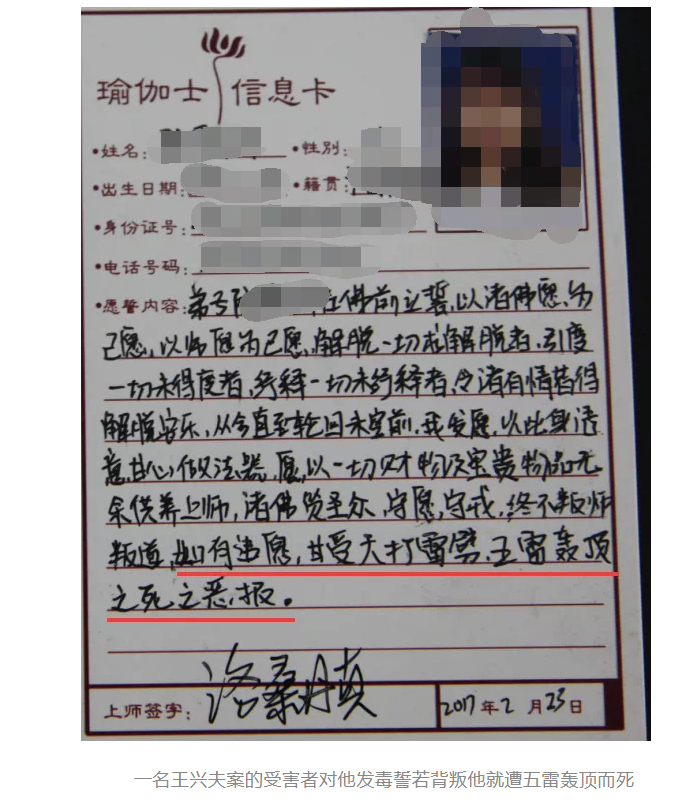 瑜伽士 信息卡
•姓名： •性别：
•出生日期： •籍贯：
•身份证号：
•电话号码：
•愿誓内容：弟子 在佛前立誓，以诸佛愿为
己愿，以师愿为己愿，解脱一切求解脱者，引度
一切未得度者，纾释一切未纾释者，令诸有情皆得
解脱安乐，从今直至轮回未空前，我发愿，以此身语
意甘心做法器，愿以一切财物及宝贵物品无
余供养上师，诸佛 圣尔，守愿，守戒，终不叛师
叛道，如有违愿，甘受天打雷劈，五雷轰顶
之死之恶报。
上师签字：洛桑丹真 2017年2月23日
一名王兴夫案的受害者对他发毒誓若背叛他就遭五雷轰顶而死